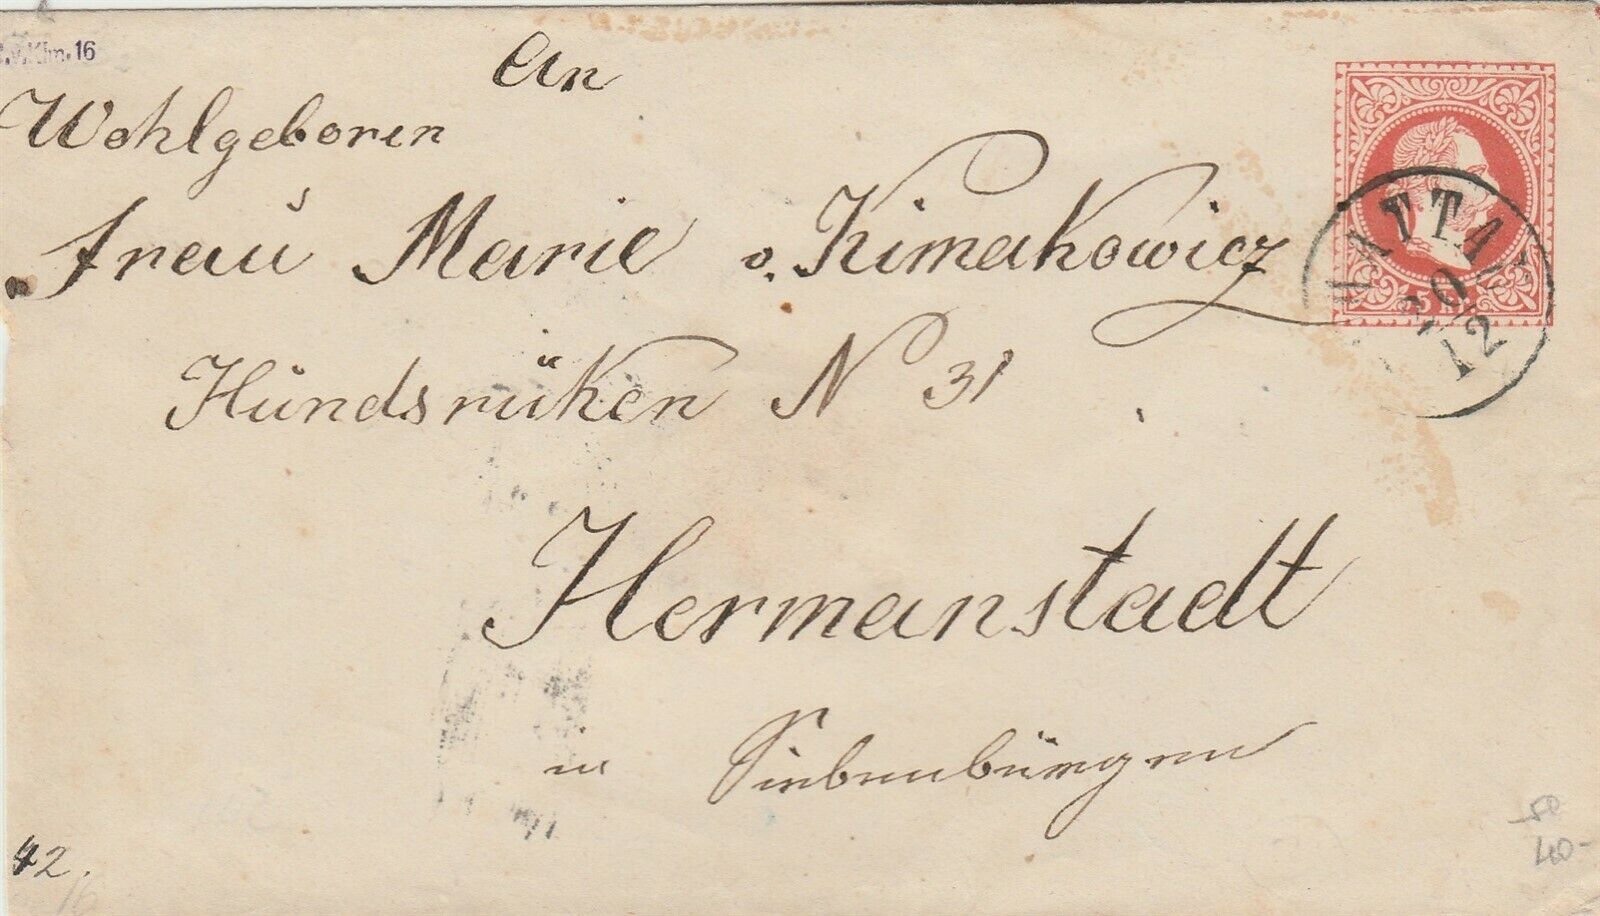 Klm. 16
An
Wohlgeboren
Frau Marie v. Kimakowicz
Hundsrüken N 31
Hermanstadt
in Siebenbürgen
MATTA
20
12
42.
50
40-